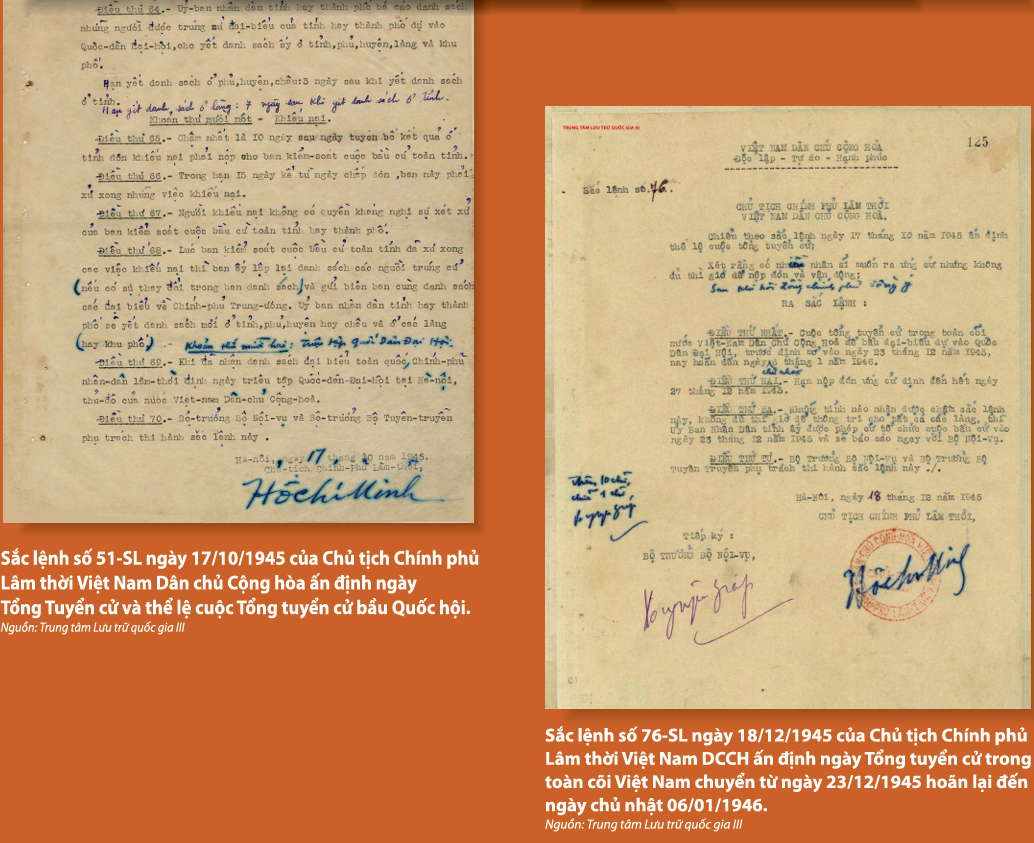 Điều thứ 64.- Uỷ-ban nhân dân tỉnh hay thành phố bá cáo danh sách
những người được trúng cử đại-biểu của tỉnh hay thành phố dự vào
Quốc-dân đại-hội, cho yết danh sách ấy ở tỉnh, phủ, huyện, làng và khu
phố.
Hạn yết danh sách ở phủ, huyện, châu: 3 ngày sau khi yết danh sách
ở tỉnh.
Hạn yết danh sách ở làng: 7 ngày sau khi yết danh sách ở tỉnh.
Khoản thứ mười một - Khiếu nại.
Điều thứ 65.- Chậm nhất là 10 ngày sau ngày tuyên bố kết quả ở
tỉnh đơn khiếu nại phải nộp cho ban kiểm-soát cuộc bầu cử toàn tỉnh.
Điều thứ 66.- Trong hạn 15 ngày kể từ ngày chấp đơn, ban này phải
xử xong những việc khiếu nại.
Điều thứ 67.- Người khiếu nại không có quyền kháng nghị sự xét xử
của ban kiểm soát cuộc bầu cử toàn tỉnh hay thành phố.
Điều thứ 68.- Lúc ban kiểm soát cuộc bầu cử toàn tỉnh đã xử xong
các việc khiếu nại thì ban ấy lập lại danh sách các người trúng cử
(nếu có sự thay đổi trong bản danh sách) và gửi biên bản cùng danh sách
các đại biểu về Chính-phủ Trung-ương. Uỷ ban nhân dân tỉnh hay thành
phố sẽ yết danh sách mới ở tỉnh, phủ, huyện hay châu và ở các làng
(hay khu phố).- Khoản thứ mười hai: Triệu tập Quốc Dân Đại Hội.
Điều thứ 69.- Khi đã nhận danh sách đại biểu toàn quốc, Chính-phủ
nhân-dân lâm-thời định ngày triệu tập Quốc-dân-Đại-hội tại Hà-nội,
thủ-đô của nước Việt-nam Dân-chủ Cộng-hoà.
Điều thứ 70.- Bộ-trưởng Bộ Nội-vụ và Bộ-trưởng Bộ Tuyên-truyền
phụ trách thi hành sắc lệnh này.
Hà-nội, ngày 17 tháng 10 năm 1945.
Chủ-tịch Chính-Phủ Lâm-Thời,
Hồ Chí Minh
Sắc lệnh số 51-SL ngày 17/10/1945 của Chủ tịch Chính phủ
Lâm thời Việt Nam Dân chủ Cộng hòa ấn định ngày
Tổng Tuyển cử và thể lệ cuộc Tổng tuyển cử bầu Quốc hội.
Nguồn: Trung tâm Lưu trữ quốc gia III
TRUNG TÂM LƯU TRỮ QUỐC GIA III
125
VIỆT NAM DÂN CHỦ CỘNG HÒA
Độc lập - Tự do - Hạnh phúc
Sắc lệnh số 76.
CHỦ TỊCH CHÍNH PHỦ LÂM THỜI
VIỆT NAM DÂN CHỦ CỘNG HOÀ,
Chiểu theo sắc lệnh ngày 17 tháng 10 năm 1945 ấn định
thể lệ cuộc tổng tuyển cử;
Xét rằng có nhiều nhân sĩ muốn ra ứng cử nhưng không
đủ thì giờ để nộp đơn và vận động;
Sau khi hội đồng chính phủ đồng ý
RA SẮC LỆNH :
ĐIỀU THỨ NHẤT.- Cuộc tổng tuyển cử trong toàn cõi
nước Việt-Nam Dân Chủ Cộng Hoà để bầu đại-biểu dự vào Quốc
Dân Đại Hội, trước định mở vào ngày 23 tháng 12 năm 1945,
nay hoãn đến ngày 6 tháng 1 năm 1946.
chủ nhật
ĐIỀU THỨ HAI.- Hạn nộp đơn ứng cử định đến hết ngày
27 tháng 12 năm 1945.
ĐIỀU THỨ BA.- Những tỉnh nào nhận được chậm sắc lệnh
này, không đủ thì giờ để thông tri cho tất cả các làng, thì
Uỷ Ban Nhân Dân tỉnh ấy được phép cứ tổ chức cuộc bầu cử vào
ngày 23 tháng 12 năm 1945 và sẽ báo cáo ngay với Bộ Nội-Vụ.
ĐIỀU THỨ TƯ.- Bộ Trưởng Bộ Nội-Vụ và Bộ Trưởng Bộ
Tuyên Truyền phụ trách thi hành sắc lệnh này ./.
Thêm 10 chữ,
chữa 1 chữ,
Hà-Nội, ngày 18 tháng 12 năm 1945
CHỦ TỊCH CHÍNH PHỦ LÂM THỜI,
Tiếp ký :
BỘ TRƯỞNG BỘ NỘI-VỤ,
Hồ Chí Minh
Sắc lệnh số 76-SL ngày 18/12/1945 của Chủ tịch Chính phủ
Lâm thời Việt Nam DCCH ấn định ngày Tổng tuyển cử trong
toàn cõi Việt Nam chuyển từ ngày 23/12/1945 hoãn lại đến
ngày chủ nhật 06/01/1946.
Nguồn: Trung tâm Lưu trữ quốc gia III